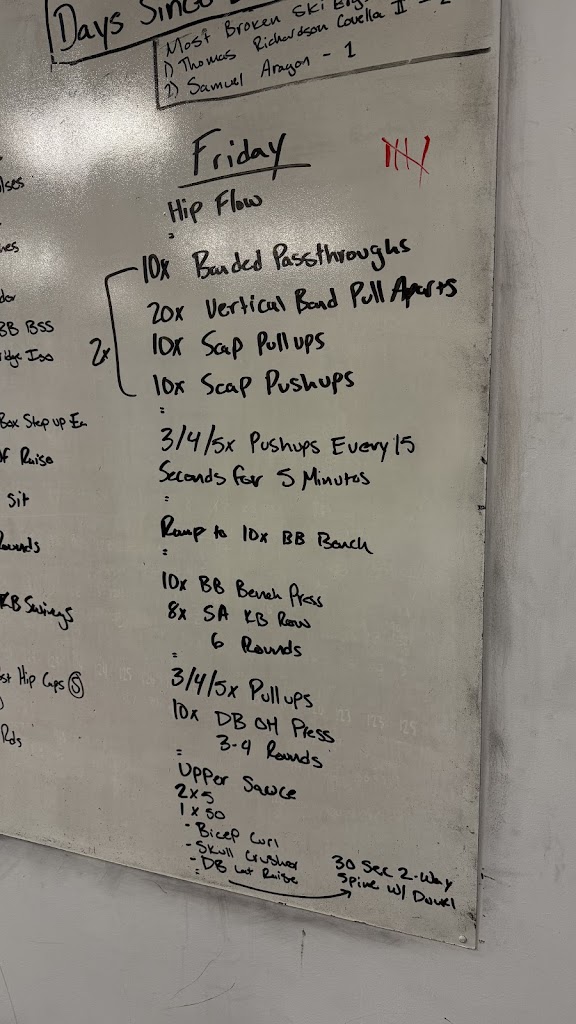 Days Since
Most Broken Ski Erg
1) Thomas Richardson Covella II - 2
2) Samuel Aragon - 1
Friday
Hip Flow
:
10x Banded Passthroughs
20x Vertical Band Pull Aparts
2x
10x Scap Pullups
10x Scap Pushups
:
3/4/5x Pushups Every 15
Seconds for 5 Minutes
:
Ramp to 10x BB Bench
:
10x BB Bench Press
8x SA KB Row
6 Rounds
:
3/4/5x Pullups
10x DB OH Press
3-4 Rounds
:
Upper Sauce
2x5
1x50
- Bicep Curl
- Skull Crusher
- DB Lat Raise
:
30 Sec 2-Way
Spine w/ Dowel
BB BSS
Iso
Box Step up
Raise
Sit
KB Swings
Hip Caps S
Rds